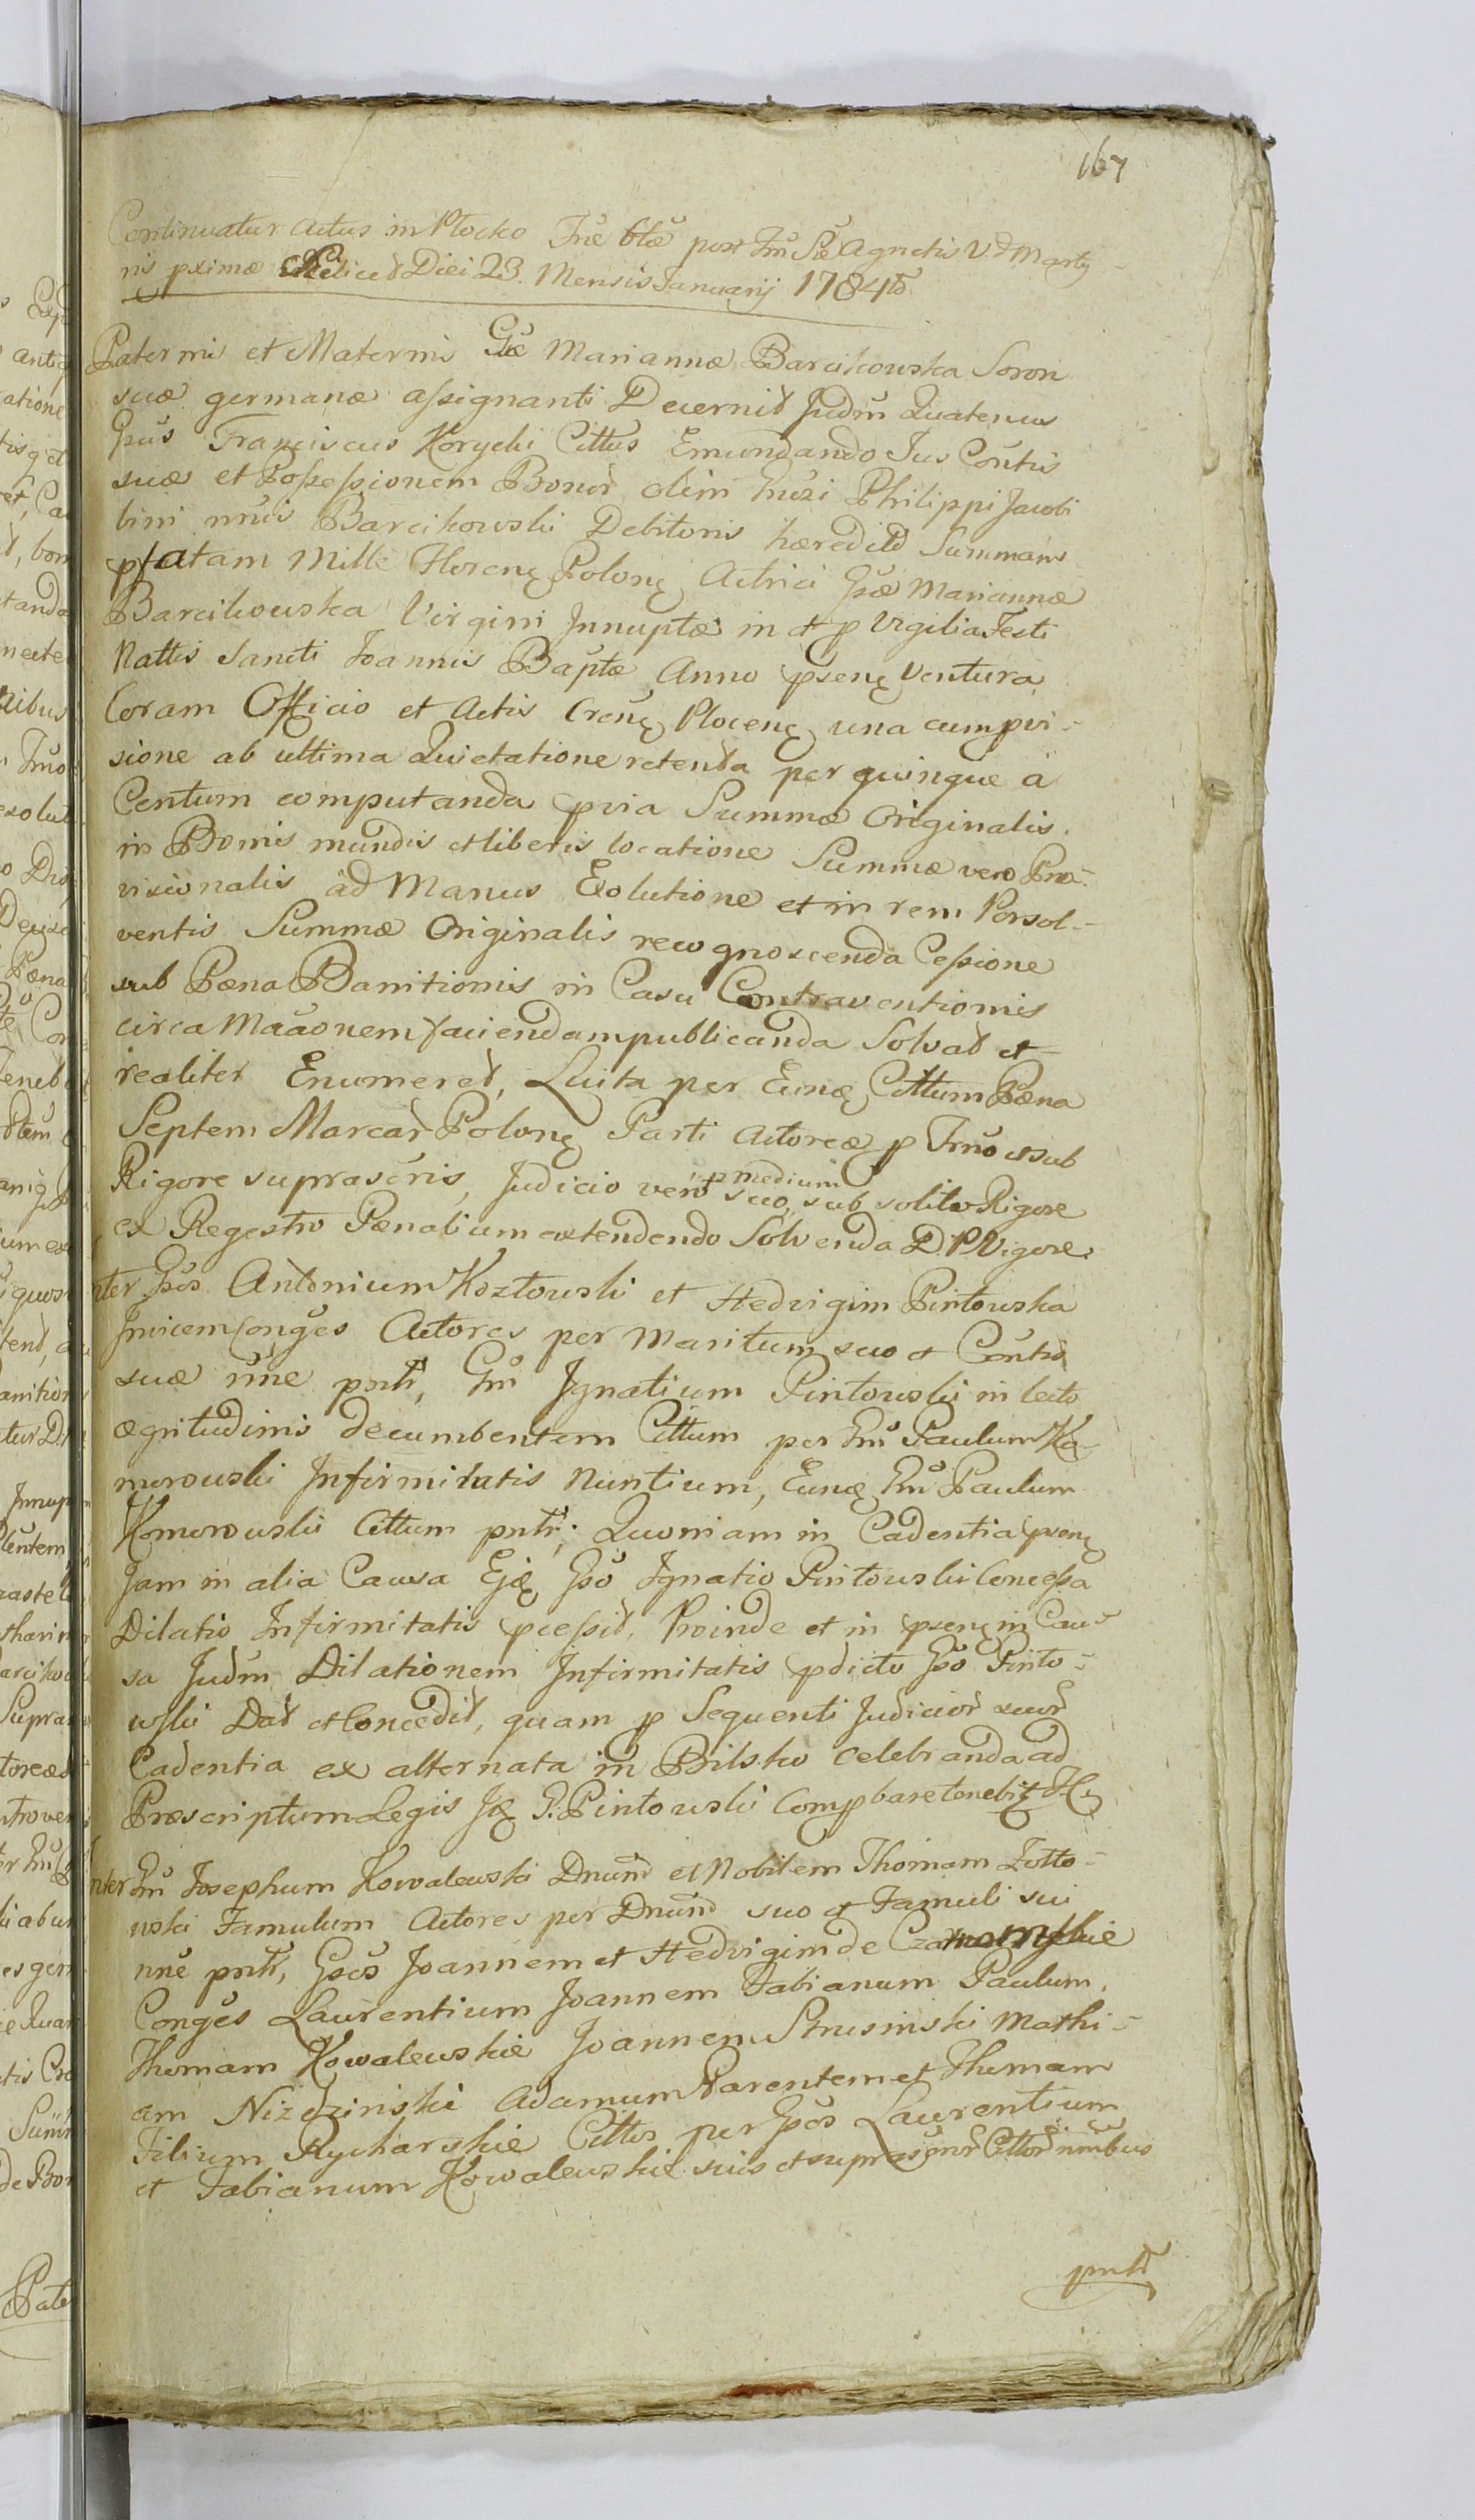 167
Continuatur Actus in Płocko Fnæ 6tæ post Fm Sæ Agnetis V. & Marty-
ris pximæ Scilicet Diei 23. Mensis Januarij 1784to
Paterni et Materni Gsæ Mariannæ Barcikowska Sorori
suæ germanæ assignanti Decernit Judm Quatenus
Gsus Franciscus Korycki Cittus Emundando Jus Contis
suæ et Possessionem Bonor olim Gnrzi Philippi Jacobi
bini nnis Barcikowski Debitoris hæredit Summam
pfatam Mille Floreng Polong Actrici Gsæ Mariannæ
Barcikowska Virgini Innuptæ in et p Vigilia Festi
Nattis Sancti Joannis Baptæ Anno pseng Ventura
Coram Officio et Actis Creng Ploceng una cum pvi-
sione ab ultima Quietatione retenta per quinque a
Centum computanda pvia Summæ Originalis
in Bonis mundis et liberis locatione Summæ vero Pro-
visionalis ad Manus Exolutione et in rem Persol-
ventis Summæ Originalis recognoscenda Cessione
sub Pæna Banitionis in Casu Contraventionis
circa Maaonem faciendam publicanda Solvat et
realiter Enumeret, Luita per Eunq Cittum Pæna
Septem Marcar Polong Parti Actoreæ p Fmo et sub
Rigore suprascris, Judicio vero p medium suo, sub solito Rigore
ex Regestro Pænalium extendendo Solvenda D. P. Vigore.
nter Gsos Antonium Kozłowski et Hedvigim Pintowska
Invicem Conges Actores per Maritum suo et Contis
suæ nne pntr, Gm Ignatium Pintowski in lecto
ægritudinis decumbentem Cittum per Gm Paulum Ko-
morowski Infirmitatis Nuntium, Eunq Gm Paulum
Komorowski Cittum pntr; Quoniam in Cadentia pseng
Jam in alia Causa Ejq Gso Ignatio Pintowski Concessa
Dilatio Infirmitatis pcessit, Proinde et in pseng in Cau-
sa Judm Dilationem Infirmitatis pdicto Gso Pinto-
wski Dat et Concedit, quam p Sequenti Judicior suor
Cadentia ex alternata in Bilsko celebranda ad
Præscriptum Legis Jq G. Pintowski Compbare tenebitz
nter Gm Josephum Kowalewski Dnum et Nobilem Thomam Zotto-
wski Famulum Actores per Dnum suo et Famuli sui
nne pntr, Gsos Joannem et Hedvigim de Czarnomyskie
Conges Laurentium Joannem Fabianum Paulum,
Thomam Kowalewskie Joannem Strusinski Mathi-
am Nizdzinski Adamum Parentem et Thomam
Filium Rycharskie Cittos per Gsos Laurentium
et Fabianum Kowalewskie suis et suprascror Cittor nnibus
pntr